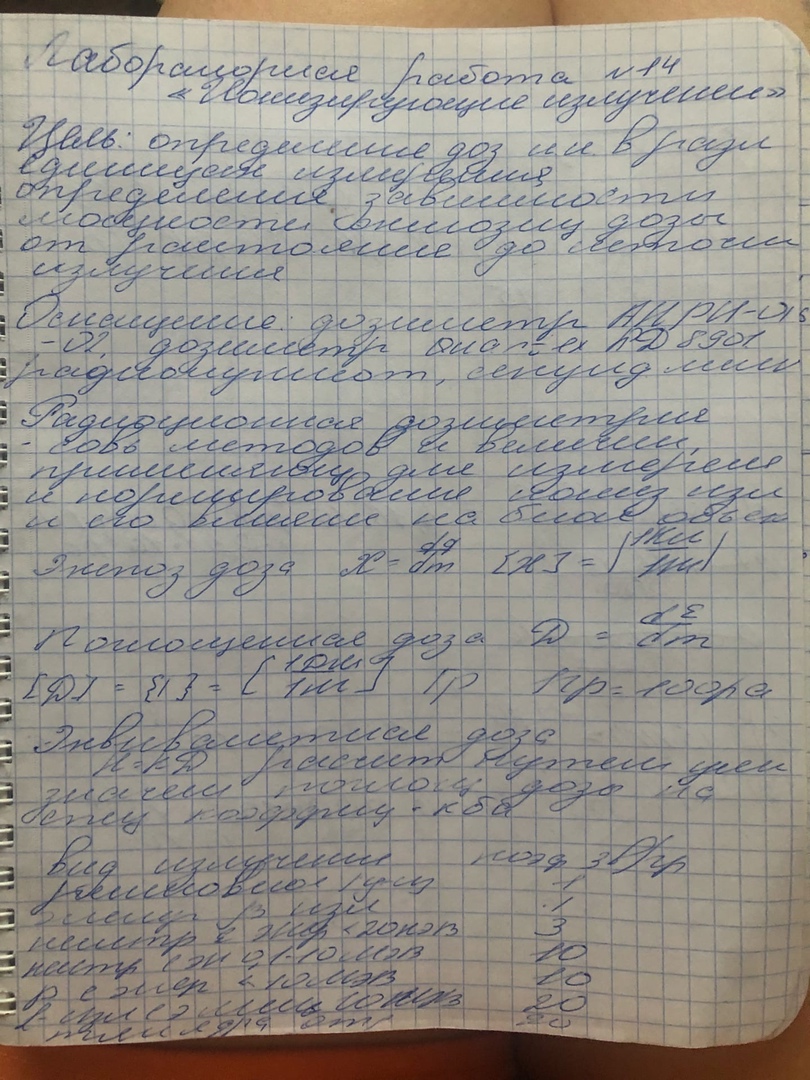 Лабораторная работа №14
«Ионизирующие излучения»
Цель: определение доз и.и. в разл
единицах измерения
определение зависимости
мощности экспозиц дозы
от расстояние до источн
излучения
Оснащение: дозиметр АНРИ-01
-02, дозиметр RD 8901
секунд
Радиационная дозиметрия
- совь методов и величин,
применяемых для измерение
и нормирование иониз изл
и его влияние на биол объек
Экспоз доза X = dq/dm [X] = [1Кл/1кг]
Поглощенная доза D = dE/dm
[D] = {1} = [1Дж/1кг] Гр Гр = 100 ра
Эквивалетная доза
H=kD расчит путем умн
значен поглощ дозы на
коэффиц - k
Вид излучения коэф Зв/гр
рентгеновное 1
β изл 1
нейтр с энер <20кэВ 3
нейтр с эн 0,1-10 МэВ 10
p с энер <10МэВ 10
изл с 20
ядра 20